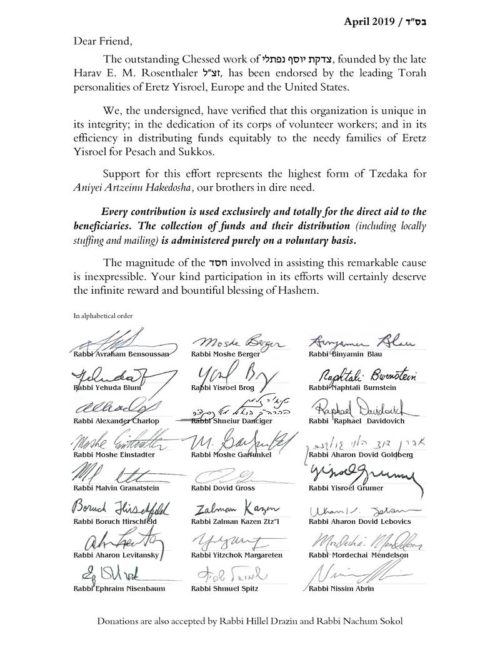 April 2019 / בס"ד
Dear Friend,
The outstanding Chessed work of צדקת יוסף נפתלי, founded by the late
Harav E. M. Rosenthaler זצ"ל, has been endorsed by the leading Torah
personalities of Eretz Yisroel, Europe and the United States.
We, the undersigned, have verified that this organization is unique in
its integrity; in the dedication of its corps of volunteer workers; and in its
efficiency in distributing funds equitably to the needy families of Eretz
Yisroel for Pesach and Sukkos.
Support for this effort represents the highest form of Tzedaka for
Aniyei Artzeinu Hakedosha, our brothers in dire need.
Every contribution is used exclusively and totally for the direct aid to the
beneficiaries. The collection of funds and their distribution (including locally
stuffing and mailing) is administered purely on a voluntary basis.
The magnitude of the חסד involved in assisting this remarkable cause
is inexpressible. Your kind participation in its efforts will certainly deserve
the infinite reward and bountiful blessing of Hashem.
In alphabetical order
Moshe Berger Binyamin Blau
Rabbi Avraham Bensoussan Rabbi Moshe Berger Rabbi Binyamin Blau
Yehuda Raphtali Burnstein
Rabbi Yehuda Blum Rabbi Yisroel Brog Rabbi Naphtali Burnstein
Raphael Davidovich
Rabbi Alexander Charlop Rabbi Shneiur Danciger Rabbi Raphael Davidovich
Moshe Einstadter M. Garfunkel
Rabbi Moshe Einstadter Rabbi Moshe Garfunkel Rabbi Aharon Dovid Goldberg
Yisroel Grumer
Rabbi Malvin Granatstein Rabbi Dovid Gross Rabbi Yisroel Grumer
Boruch Hirschfeld Zalman Kazen
Rabbi Boruch Hirschfeld Rabbi Zalman Kazen Ztz"l Rabbi Aharon Dovid Lebovics
Mordechai Mendelson
Rabbi Aharon Levitansky Rabbi Yitzchok Margareten Rabbi Mordechai Mendelson
Rabbi Ephraim Nisenbaum Rabbi Shmuel Spitz Rabbi Nissim Abrin
Donations are also accepted by Rabbi Hillel Drazin and Rabbi Nachum Sokol